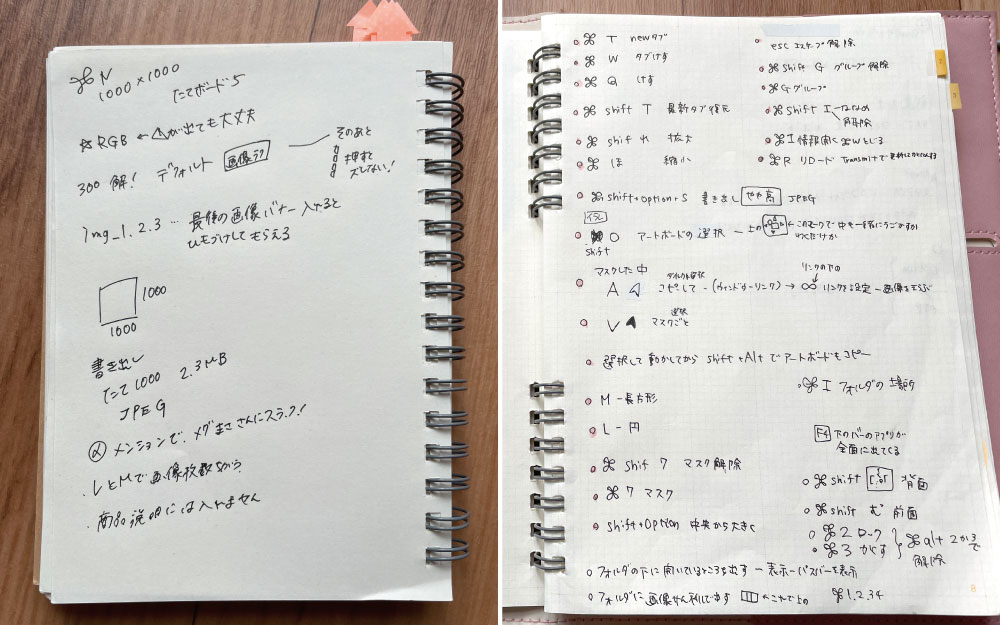 ⌘ N
1000×1000
たてボード5
☆RGB ← ⚠が出ても大丈夫
300 解! デフォルト 画像ラフ
そのあと
押すと
ズレない!
Img_1.2.3 … 最後の画像バナー入れると
ひもづけしてもらえる
1000
1000
書き出し
たて1000 2.3MB
JPEG
メンションで、メグまささんにスラック!
・LとMで画像枚数
・商品説明には入れません
⌘ T newタブ
⌘ W タブけす
⌘ Q けす
⌘ shift T 最新タブ復元
⌘ shift れ 拡大
⌘ ほ 縮小
esc エスケープ解除
⌘ shift G グループ解除
⌘G グループ
⌘ shift I ー ななめ
解除
⌘I 情報開く ⌘W とじる
⌘R リロード Transmitで
⌘shift+option+S 書き出し やや高 JPEG
イラレ
O アートボードの選択 ー 上の ←このマークで中も一緒にうごかすか
shift
わくだけか
マスクした中
ダイレクト選択
リンクの下の
A コピして ー (ウィンドウーリンク) → ∞ リンクを設定 ー 画像をえらぶ
選択
V マスクごと
選択して動かしてから shift+Alt でアートボードもコピー
⌘ I フォルダの場所
M ー 長方形
L ー 円
F4 下のバーのアプリが
全面に出てくる
⌘ shift 7 マスク解除
⌘ 7 マスク
⌘shift 背面
⌘shift む 前面
shift+option 中央から大きく
⌘2 ロック
⌘3 かくす
⌘alt 2か3で
解除
フォルダの下に開いているところを出す ー 表示ーパスバーを表示
フォルダに画像 出す ←これで上の ⌘1.2.3.4
8